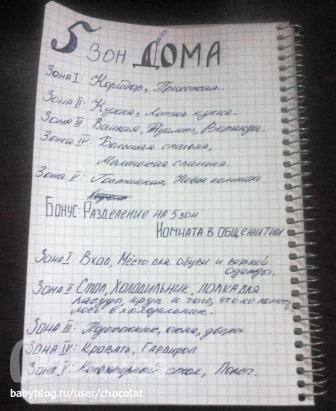 5 зон Дома
Зона I: Коридор, Прихожая.
Зона II: Кухня, Летняя кухня.
Зона III Ванная, Туалет, Веранда.
Зона IV: Большая спальня,
Маленькая спальня.
Зона V: Гостинная, комната.
Бонус: Разделение на 5 зон
Комната в общежитии
Зона I: Вход, Место для обуви и верхней
одежды.
Зона II Стол, Холодильник, полка для
посуды, круп и того, что не
в холодильник.
Зона III: окна, двери
Зона IV: Кровать, Гардироп
Зона V: Компьютерный стол, Полет.
babyblog.ru/user/chocolat